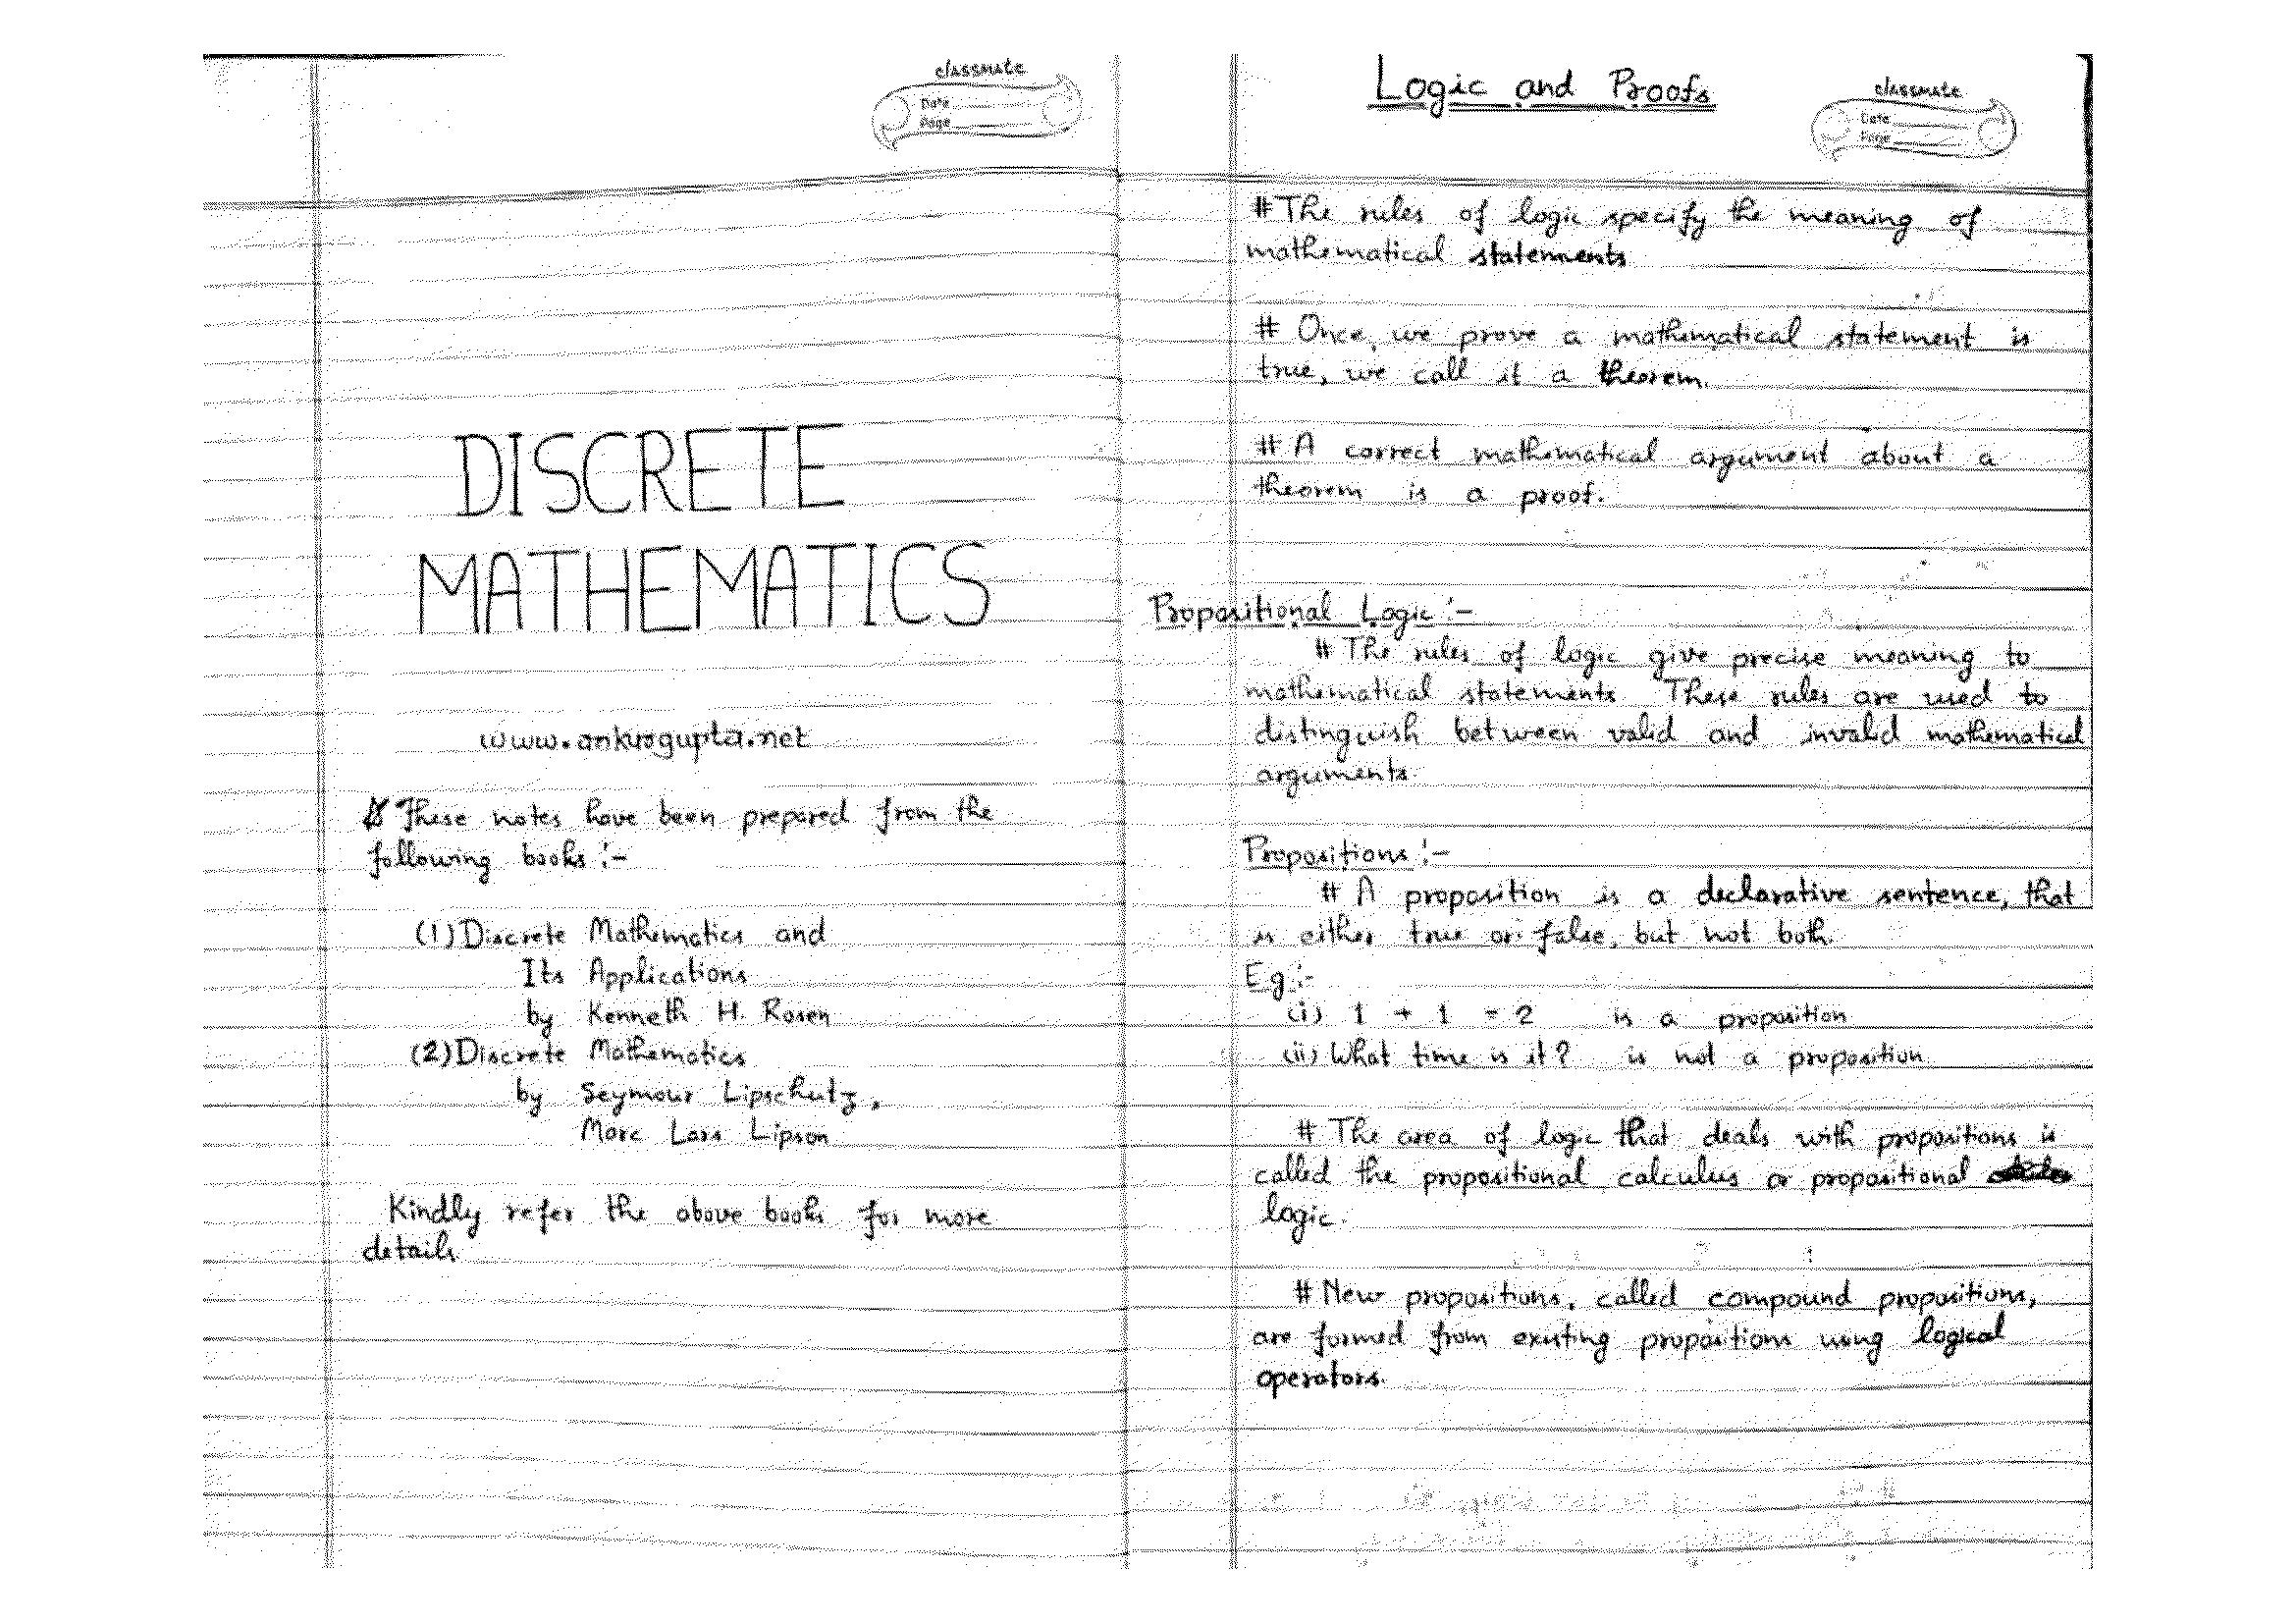 classmate
Date
Page
DISCRETE
MATHEMATICS
www.ankurgupta.net
These notes have been prepared from the
following books :-
(1) Discrete Mathematics and
Its Applications
by Kenneth H. Rosen
(2) Discrete Mathematics
by Seymour Lipschutz,
Marc Lars Lipson
Kindly refer the above books for more
details.
Logic and Proofs
classmate
Date
Page
# The rules of logic specify the meaning of
mathematical statements
# Once, we prove a mathematical statement is
true, we call it a theorem.
# A correct mathematical argument about a
theorem is a proof.
Propositional Logic :-
# The rules of logic give precise meaning to
mathematical statements These rules are used to
distinguish between valid and invalid mathematical
arguments.
Propositions :-
# A proposition is a declarative sentence, that
is either true or false, but not both.
Eg :-
(i) 1 + 1 = 2 is a proposition
(ii) What time is it? is not a proposition
# The area of logic that deals with propositions is
called the propositional calculus or propositional
logic.
# New propositions, called compound propositions,
are formed from existing propositions using logical
operators.